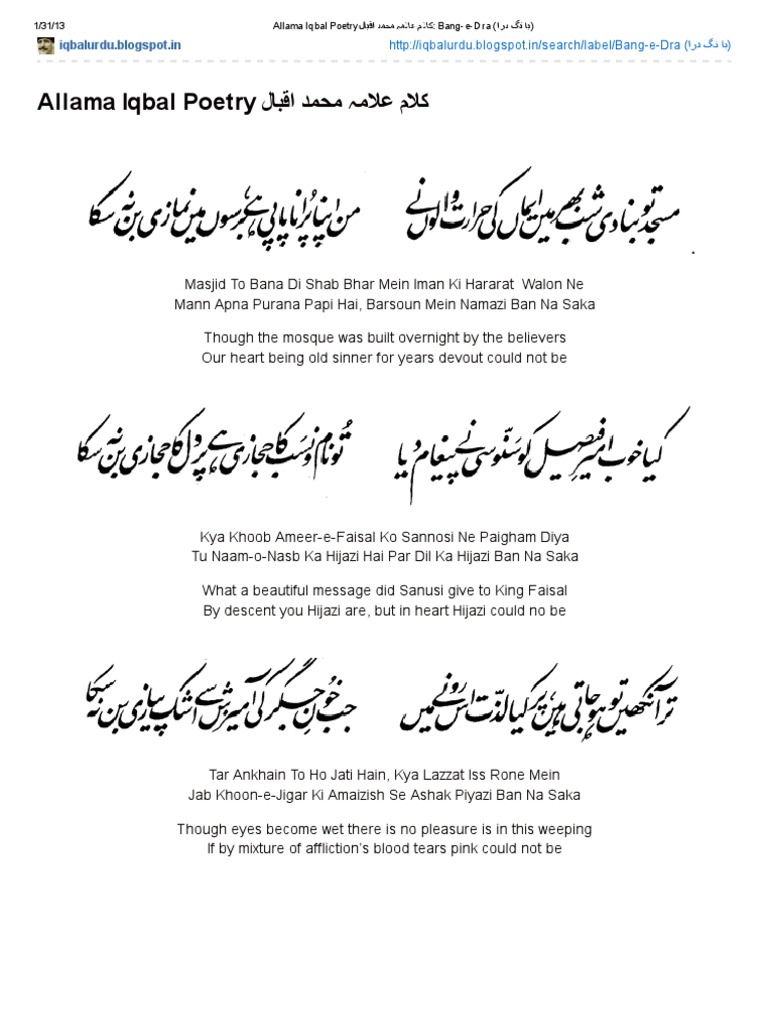 1/31/13
Allama Iqbal Poetry کلام علامہ محمد اقبال: Bang-e-Dra (با نگ درا)
iqbalurdu.blogspot.in
http://iqbalurdu.blogspot.in/search/label/Bang-e-Dra (با نگ درا)
Allama Iqbal Poetry کلام علامہ محمد اقبال
مسجد تو بنا دی شب بھر میں ایماں کی حرارت والوں نے من اپنا پرانا پاپی ہے، برسوں میں نمازی بن نہ سکا
Masjid To Bana Di Shab Bhar Mein Iman Ki Hararat Walon Ne
Mann Apna Purana Papi Hai, Barsoun Mein Namazi Ban Na Saka
Though the mosque was built overnight by the believers
Our heart being old sinner for years devout could not be
کیا خوب امیرِ فیصل کو سنّوسی نے پیغام دیا تُو نام و نسب کا حجازی ہے پر دل کا حجازی بن نہ سکا
Kya Khoob Ameer-e-Faisal Ko Sannosi Ne Paigham Diya
Tu Naam-o-Nasb Ka Hijazi Hai Par Dil Ka Hijazi Ban Na Saka
What a beautiful message did Sanusi give to King Faisal
By descent you Hijazi are, but in heart Hijazi could no be
تر آنکھیں تو ہو جاتی ہیں، پر کیا لذّت اس رونے میں جب خُونِ جگر کی آمیزش سے اشک پیازی بن نہ سکا
Tar Ankhain To Ho Jati Hain, Kya Lazzat Iss Rone Mein
Jab Khoon-e-Jigar Ki Amaizish Se Ashak Piyazi Ban Na Saka
Though eyes become wet there is no pleasure is in this weeping
If by mixture of affliction's blood tears pink could not be